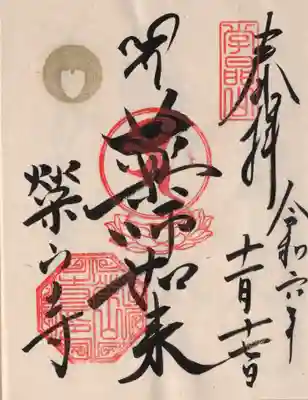 奉拝
學晶山
令和六年
十一月十七日
薬師如来
榮山寺